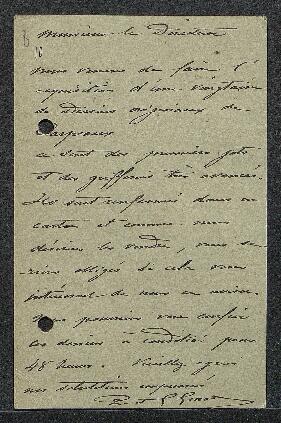 Monsieur le Directeur
nous venons de faire l'
acquisition d'une vingtaine
de dessins originaux de
Carpeaux
ce sont des premiers jets
et des très avancés.
Ils sont renfermés dans un
carton et comme nous
désirons les vendre, nous se-
rions obligés si cela vous
intéresse de nous en aviser.
Nous pourrions vous confier
ces dessins à condition pour
48 heures. Veuillez agréer
nos salutations empressées